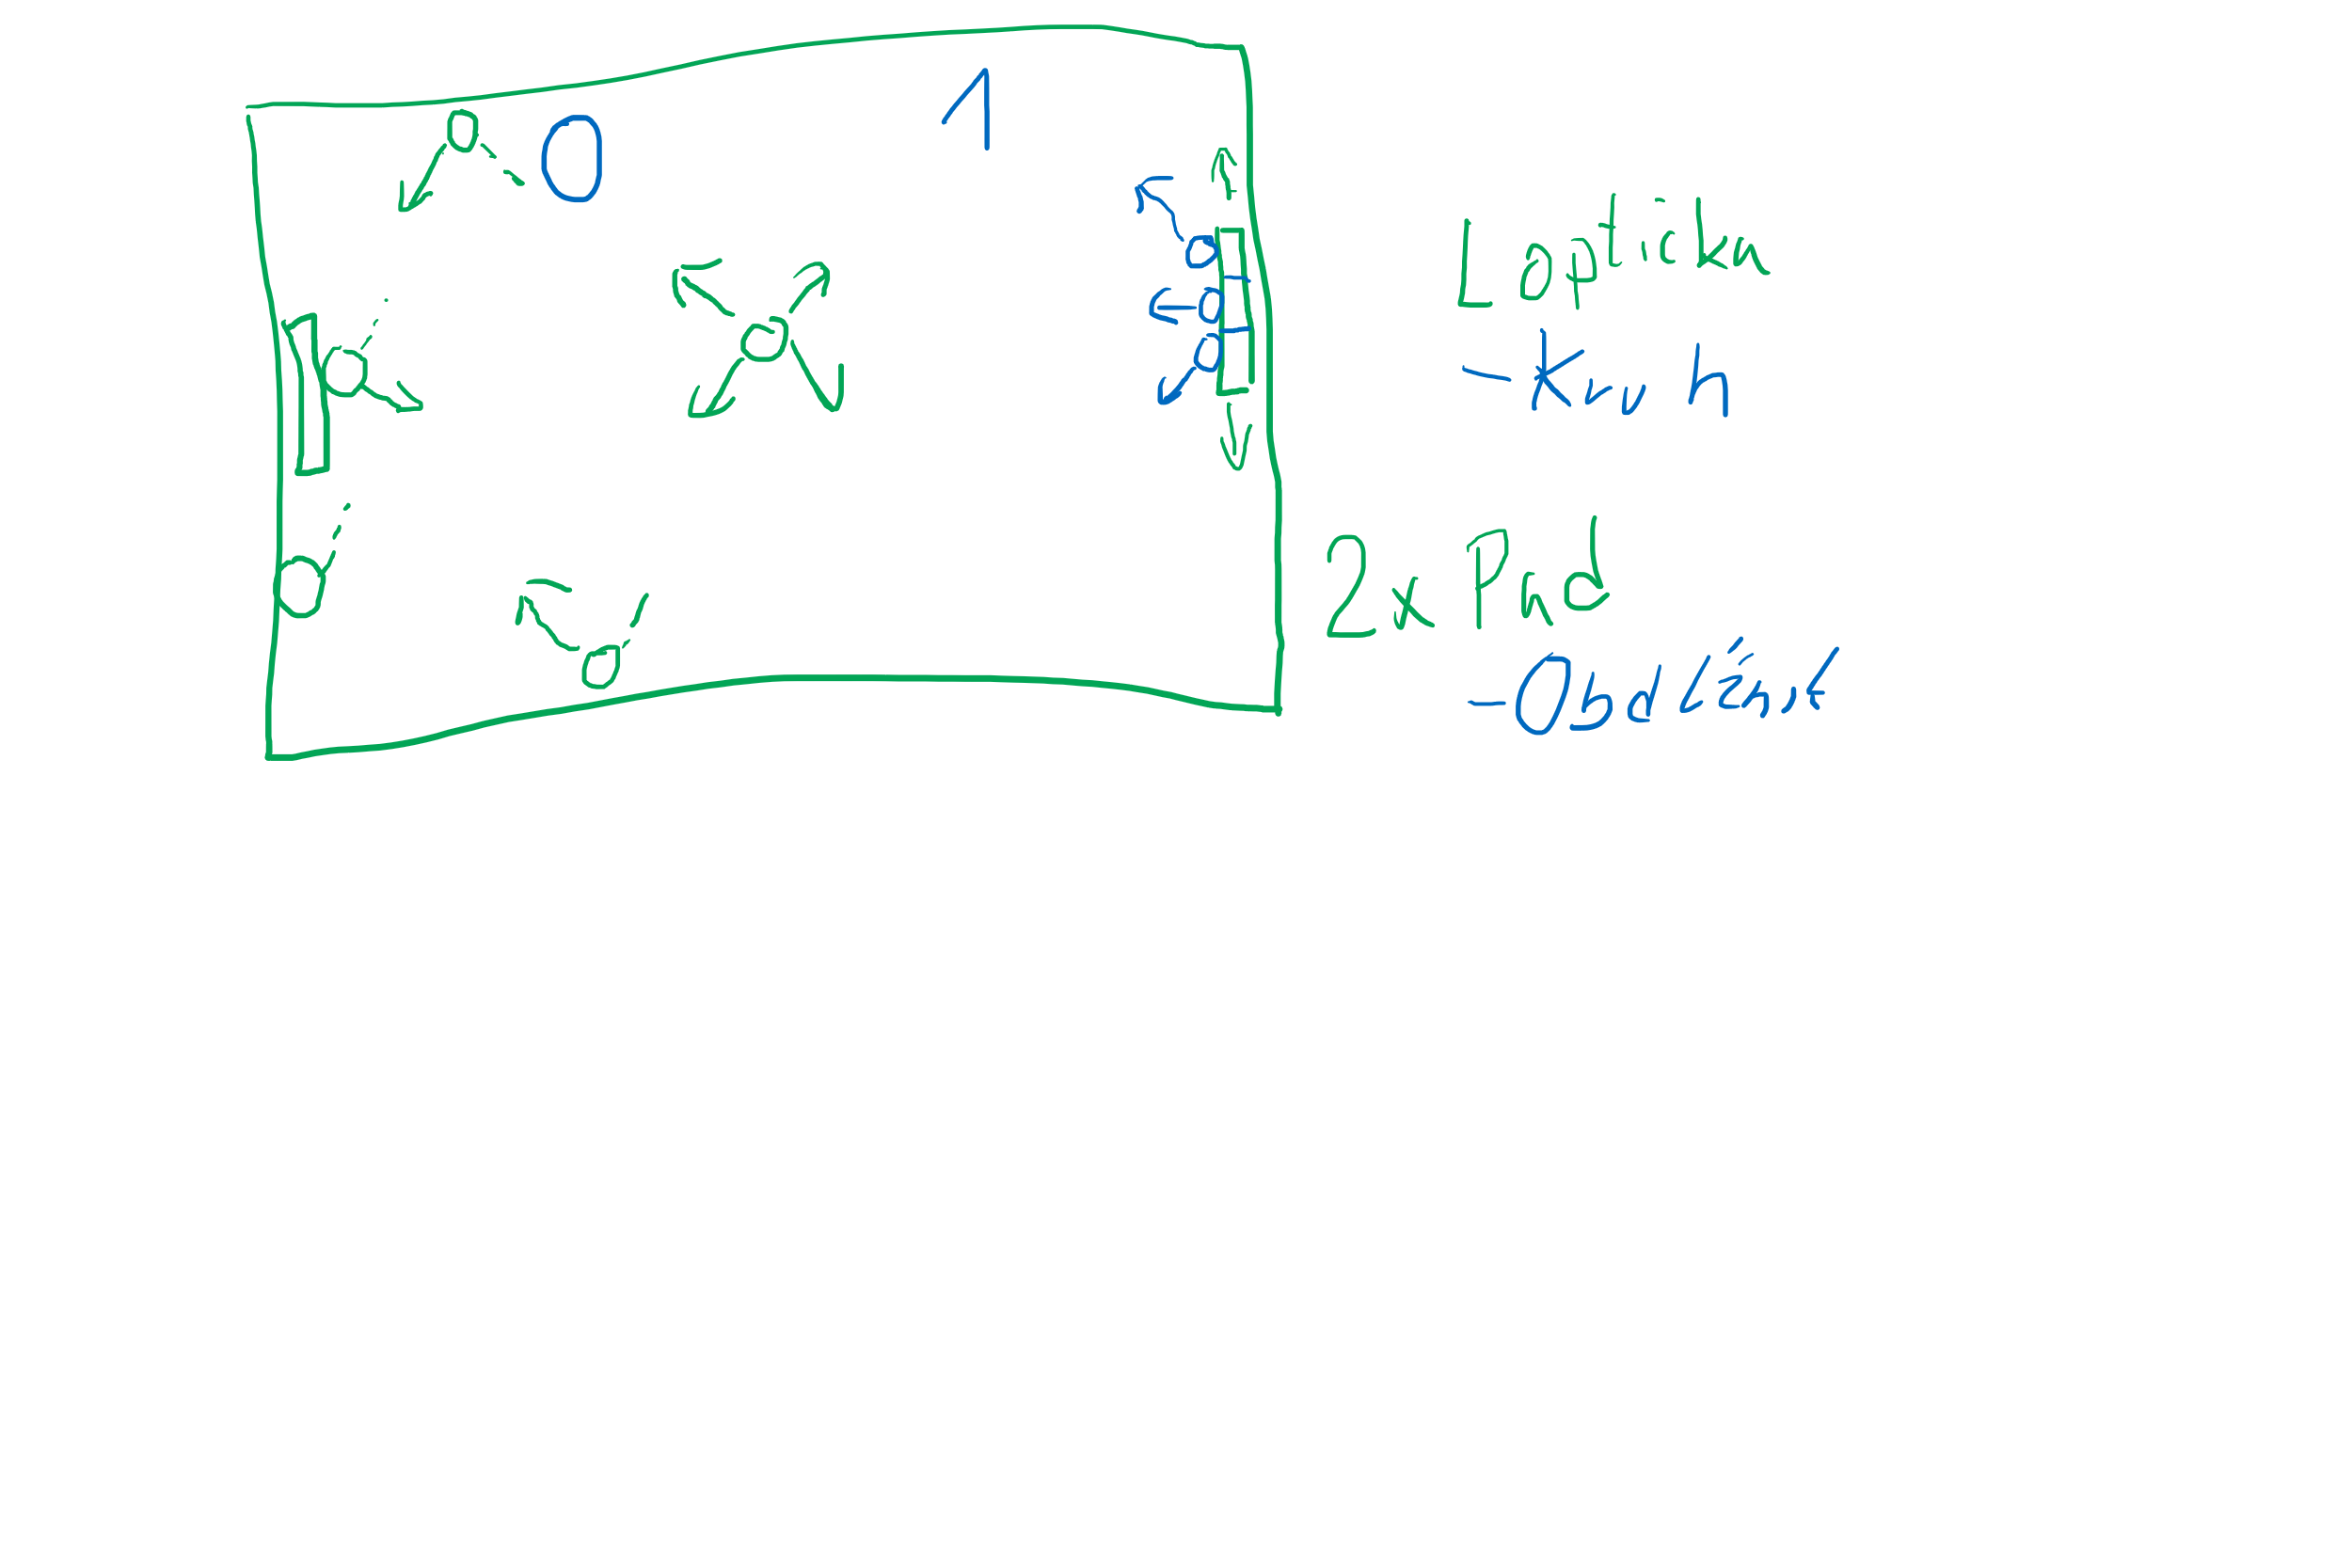 0 1
Loptička
- Kruh
2x Pad
- Obdĺžnik